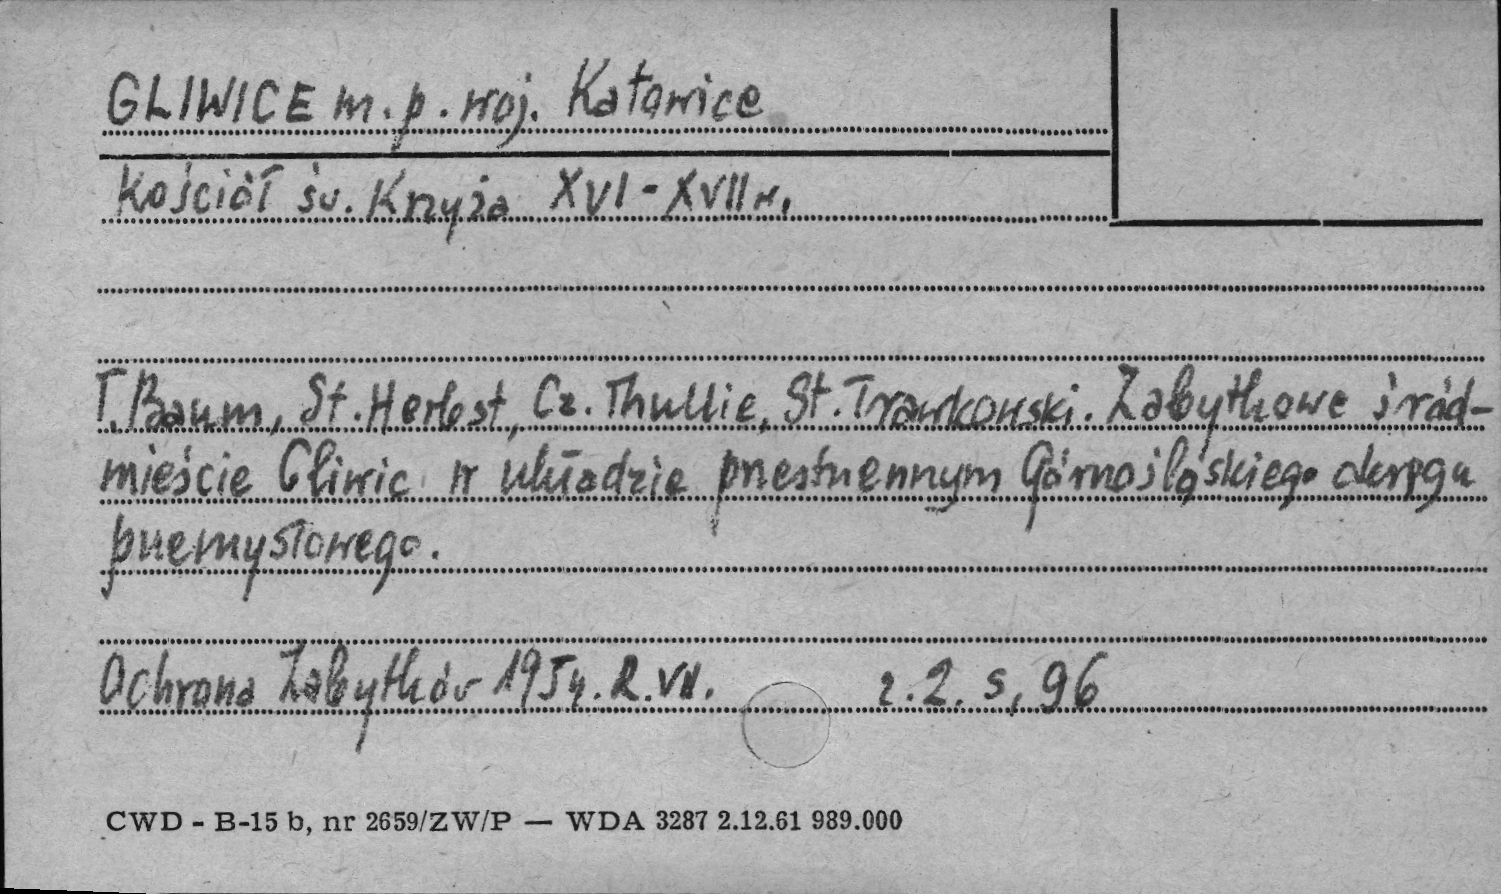 GLIWICE m. p. woj. Katowice
Kościół św. Krzyża XVI - XVII w.
T. Baum, St. Herbst, Cz. Thullie, St. Trawkowski. Zabytkowe śród-
mieście Gliwic w układzie przestrzennym Górnośląskiego okręgu
przemysłowego.
Ochrona Zabytków 1954. R. VII. z. 2. s. 96
CWD - B-15 b, nr 2659/ZW/P — WDA 3287 2.12.61 989.000